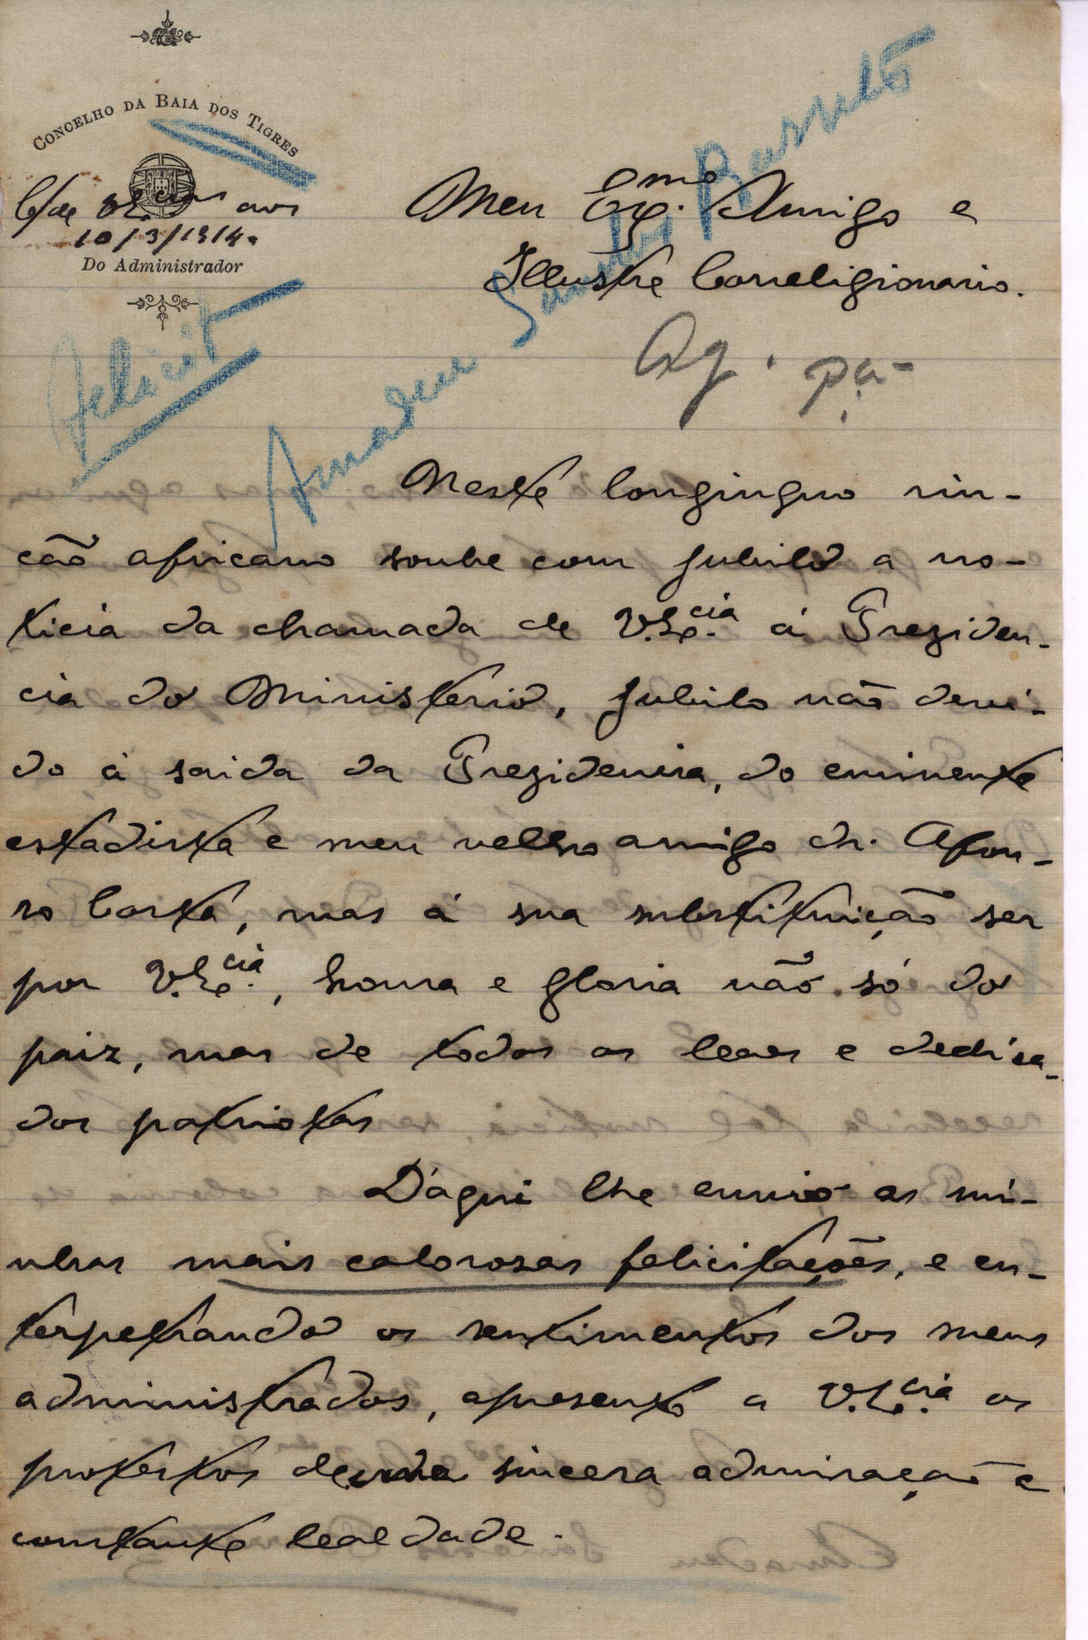 CONCELHO DA BAIA DOS TIGRES
10/3/1914.
Do Administrador
Felicit
Amadeu Barreto
Meu Exmo. Amigo e
Illustre Correligionario.
Ag. pa
Neste longinquo rin-
cão africano soube com jubilo a no-
ticia da chamada de V.Excia. á Preziden-
cia do Ministerio, jubilo não devi-
do á saida da Prezidencia, do eminente
estadista e meu velho amigo dr. Afon-
so Costa, mas á sua substituição ser
por V.Excia., honra e gloria não só do
paiz, mas de todos os leaes e dedica-
dos patriotas
D'aqui lhe envio as mi-
nhas mais calorosas felicitações, e en-
terpetrando os sentimentos dos meus
administrados, apresento a V.Excia. os
protestos de uma sincera admiração e
constante lealdade.